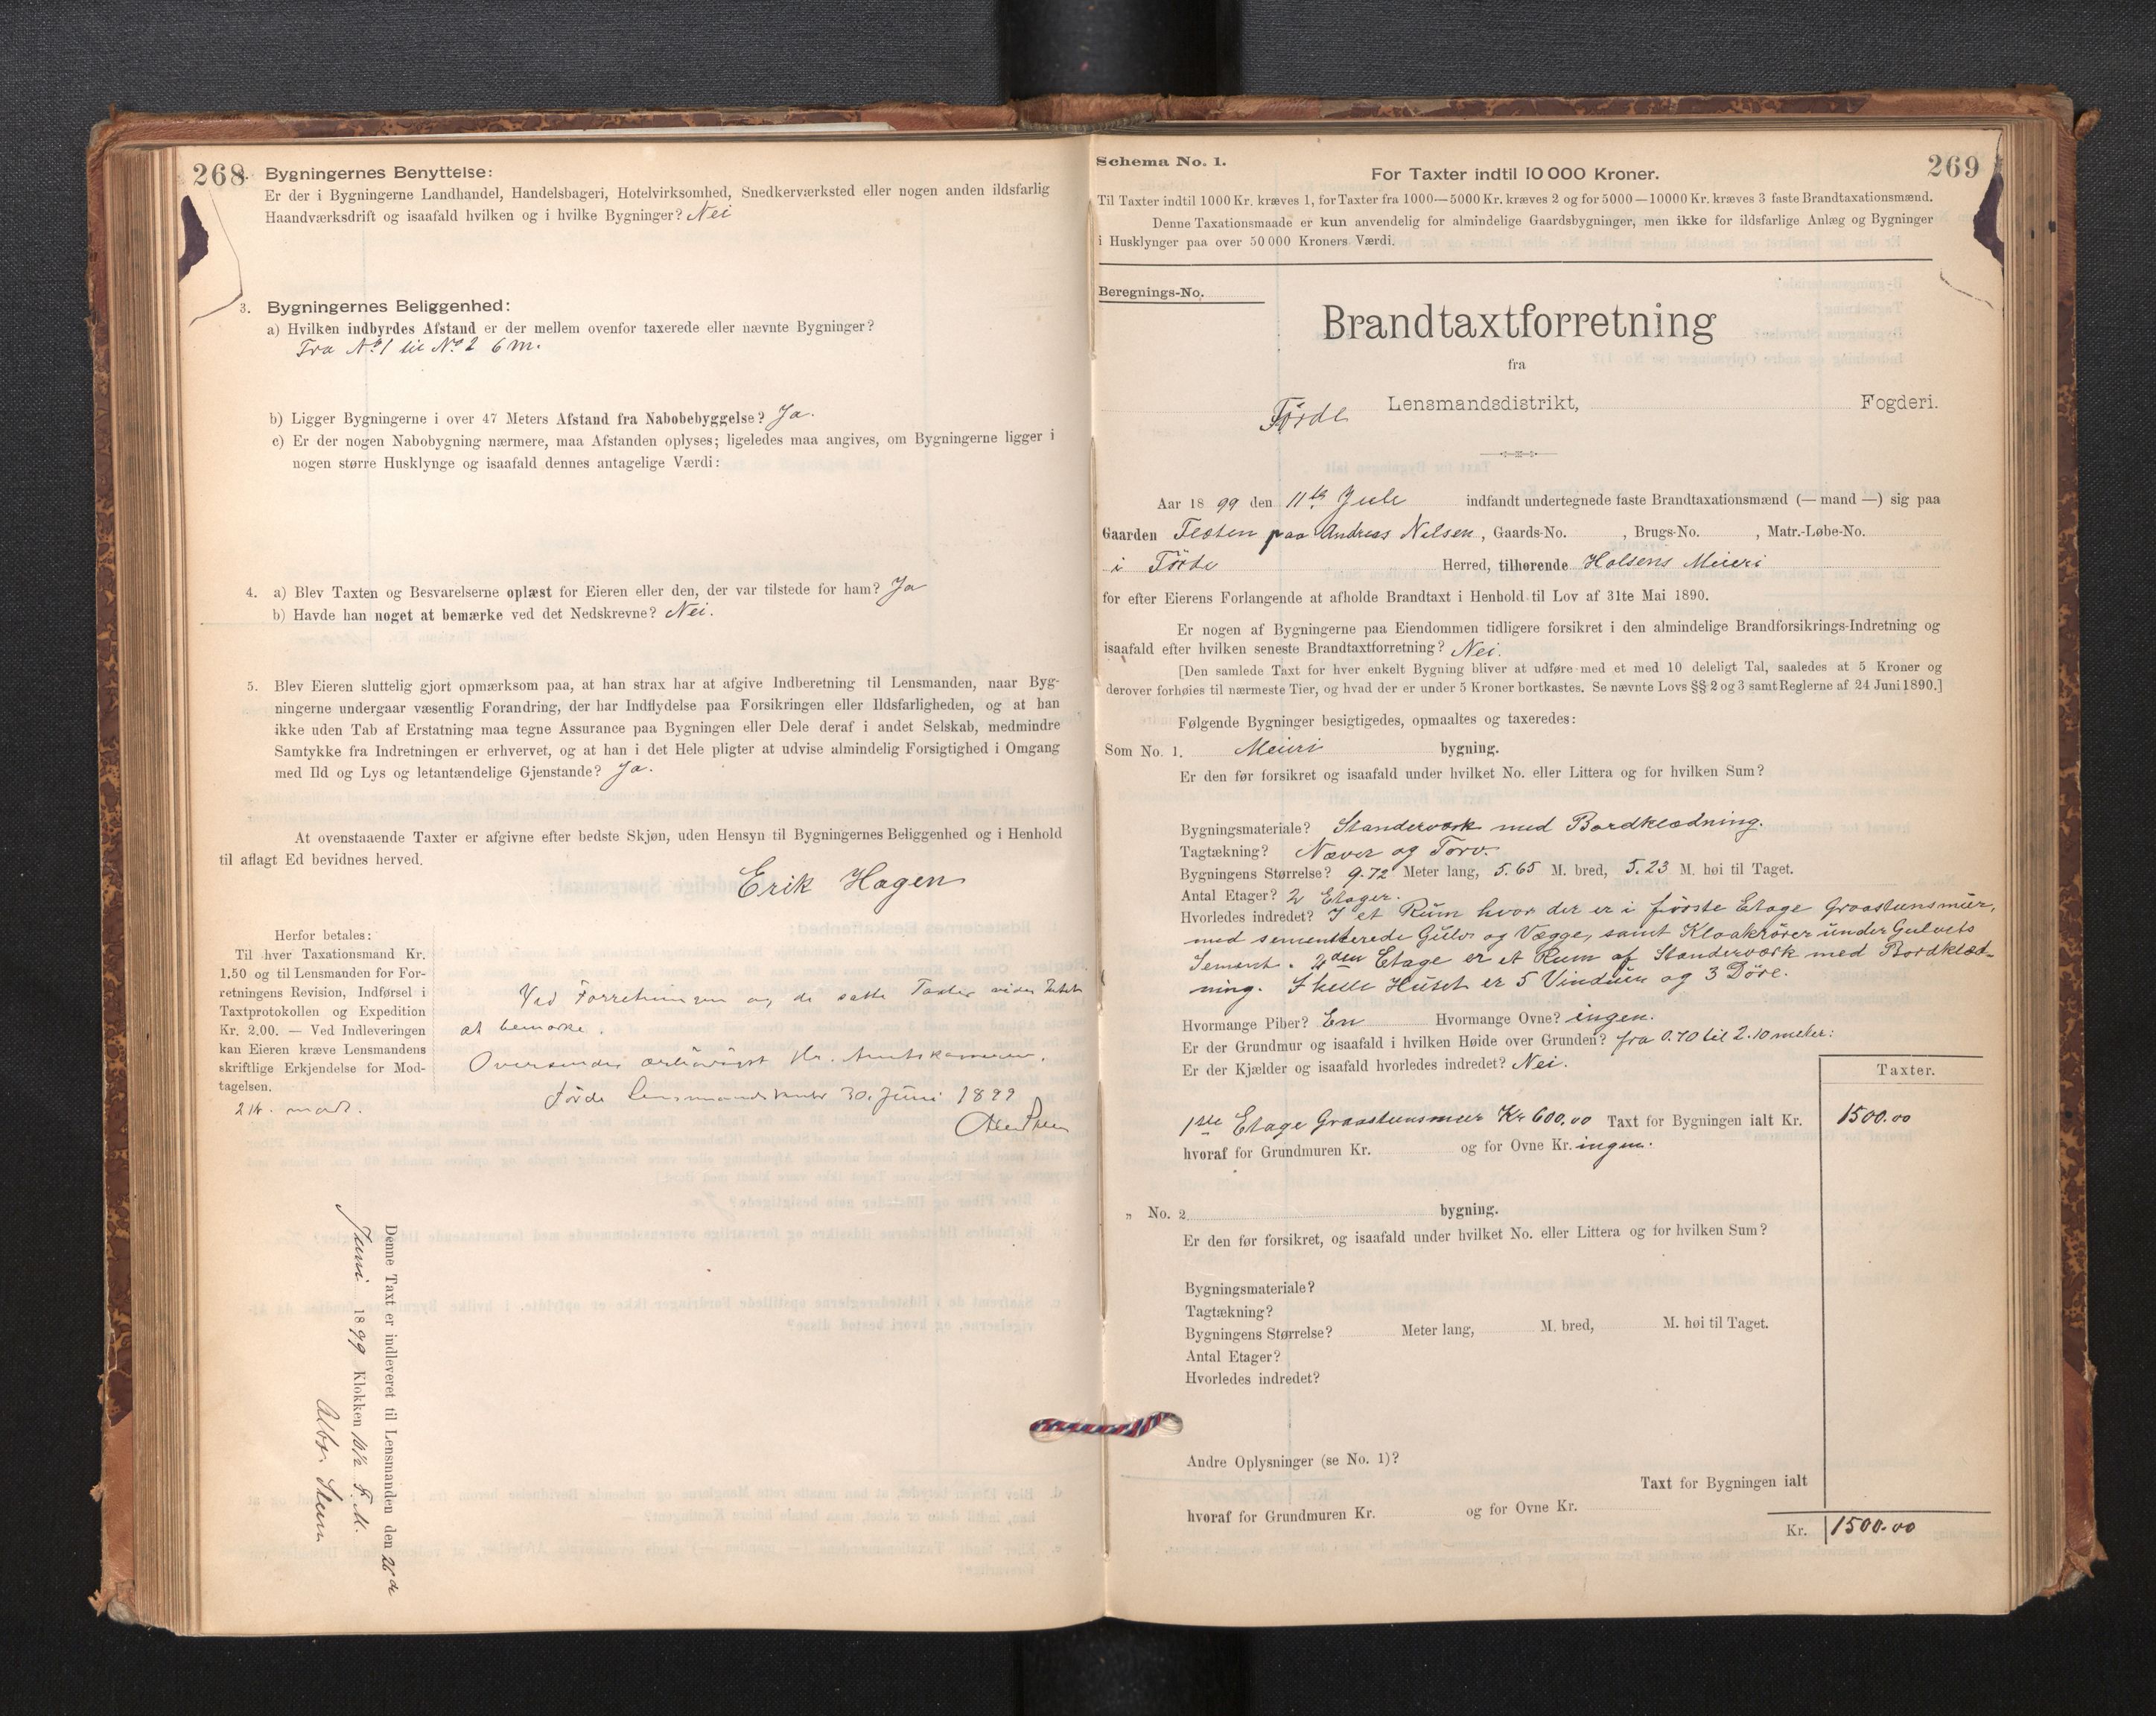 268
2. Bygningernes Benyttelse:
Er der i Bygningerne Landhandel, Handelsbageri, Hotelvirksomhed, Snedkerværksted eller nogen anden ildsfarlig
Haandværksdrift og isaafald hvilken og i hvilke Bygninger? Nei
3. Bygningernes Beliggenhed:
a) Hvilken indbyrdes Afstand er der mellem ovenfor taxerede eller nævnte Bygninger?
Fra No 1 til No 2 6 m.
b) Ligger Bygningerne i over 47 Meters Afstand fra Nabobebyggelse? Ja.
c) Er der nogen Nabobygning nærmere, maa Afstanden oplyses; ligeledes maa angives, om Bygningerne ligger i
nogen større Husklynge og isaafald dennes antagelige Værdi:
4. a) Blev Taxten og Besvarelserne oplæst for Eieren eller den, der var tilstede for ham? Ja
b) Havde han noget at bemærke ved det Nedskrevne? Nei.
5. Blev Eieren sluttelig gjort opmærksom paa, at han strax har at afgive Indberetning til Lensmanden, naar Byg-
ningerne undergaar væsentlig Forandring, der har Indflydelse paa Forsikringen eller Ildsfarligheden, og at han
ikke uden Tab af Erstatning maa tegne Assurance paa Bygningen eller Dele deraf i andet Selskab, medmindre
Samtykke fra Indretningen er erhvervet, og at han i det Hele pligter at udvise almindelig Forsigtighed i Omgang
med Ild og Lys og letantændelige Gjenstande? Ja.
At ovenstaaende Taxter er afgivne efter bedste Skjøn, uden Hensyn til Bygningernes Beliggenhed og i Henhold
til aflagt Ed bevidnes herved.
Erik Hagen
Herfor betales:
Til hver Taxationsmand Kr.
1.50 og til Lensmanden for For-
retningens Revision, Indførsel i
Taxtprotokollen og Expedition
Kr. 2.00. — Ved Indleveringen
kan Eieren kræve Lensmandens
skriftlige Erkjendelse for Mod-
tagelsen.
Ved Forretningen og de satte Taxter vides Intet
at bemærke.
Oversendes ærbødigst Hr. Amtskasserer.
Førde Lensmandskontor 30. Juni 1899
Denne Taxt er indleveret til Lensmanden den 26de
Juni 1899 Klokken 10½ F. M.
Schema No. 1.
269
For Taxter indtil 10 000 Kroner.
Til Taxter indtil 1000 Kr. kræves 1, for Taxter fra 1000—5000 Kr. kræves 2 og for 5000—10000 Kr. kræves 3 faste Brandtaxationsmænd.
Denne Taxationsmaade er kun anvendelig for almindelige Gaardsbygninger, men ikke for ildsfarlige Anlæg og Bygninger
i Husklynger paa over 50 000 Kroners Værdi.
Beregnings-No.
Brandtaxtforretning
fra
Førde Lensmandsdistrikt, Fogderi.
Aar 1899 den 11te Juli indfandt undertegnede faste Brandtaxationsmænd (— mand —) sig paa
Gaarden Teften paa Andreas Nilsen, Gaards-No. , Brugs-No. , Matr.-Løbe-No.
i Førde Herred, tilhørende Holsens Meieri
for efter Eierens Forlangende at afholde Brandtaxt i Henhold til Lov af 31te Mai 1890.
Er nogen af Bygningerne paa Eiendommen tidligere forsikret i den almindelige Brandforsikrings-Indretning og
isaafald efter hvilken seneste Brandtaxtforretning? Nei.
[Den samlede Taxt for hver enkelt Bygning bliver at udføre med et med 10 deleligt Tal, saaledes at 5 Kroner og
derover forhøies til nærmeste Tier, og hvad der er under 5 Kroner bortkastes. Se nævnte Lovs §§ 2 og 3 samt Reglerne af 24 Juni 1890.]
Følgende Bygninger besigtigedes, opmaaltes og taxeredes:
Som No. 1. Meieri bygning.
Er den før forsikret og isaafald under hvilket No. eller Littera og for hvilken Sum?
Bygningsmateriale? Standerværk med Bordklædning.
Tagtækning? Næver og Torv.
Bygningens Størrelse? 9.72 Meter lang, 5.65 M. bred, 5.23 M. høi til Taget.
Antal Etager? 2 Etager.
Hvorledes indredet? I et Rum hvor der er i første Etage Graastensmur,
med sementerede Gulv og Vægge, samt Kloakrører under Gulvets
Sement. 2den Etage er et Rum af Standerværk med Bordklæd-
ning. I hele Huset er 5 Vinduer og 3 Døre.
Hvormange Piber? En Hvormange Ovne? ingen.
Er der Grundmur og isaafald i hvilken Høide over Grunden? fra 0.70 til 2.10 meter:
Er der Kjælder og isaafald hvorledes indredet? Nei.
Taxter.
1ste Etage Graastensmur Kr 600.00 Taxt for Bygningen ialt Kr. 1500.00
hvoraf for Grundmuren Kr. og for Ovne Kr. ingen.
„ No. 2 bygning.
Er den før forsikret, og isaafald under hvilket No. eller Littera og for hvilken Sum?
Bygningsmateriale?
Tagtækning?
Bygningens Størrelse? Meter lang, M. bred, M. høi til Taget.
Antal Etager?
Hvorledes indredet?
Andre Oplysninger (se No. 1)?
Taxt for Bygningen ialt
hvoraf for Grundmuren Kr. og for Ovne Kr.
Kr. 1500.00